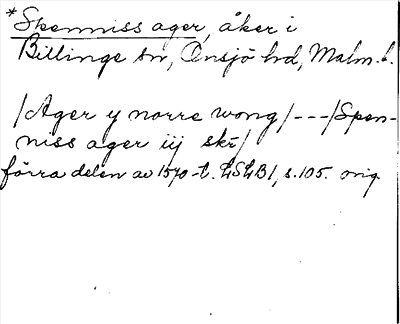 *Skenniss ager, åker i
Billinge sn, Onsjö hd, Malm. l.
/Ager y norre wong/---/Spen-
niss ager iij skr/
förra delen av 1570-t. LSLB1, s.105. orig.